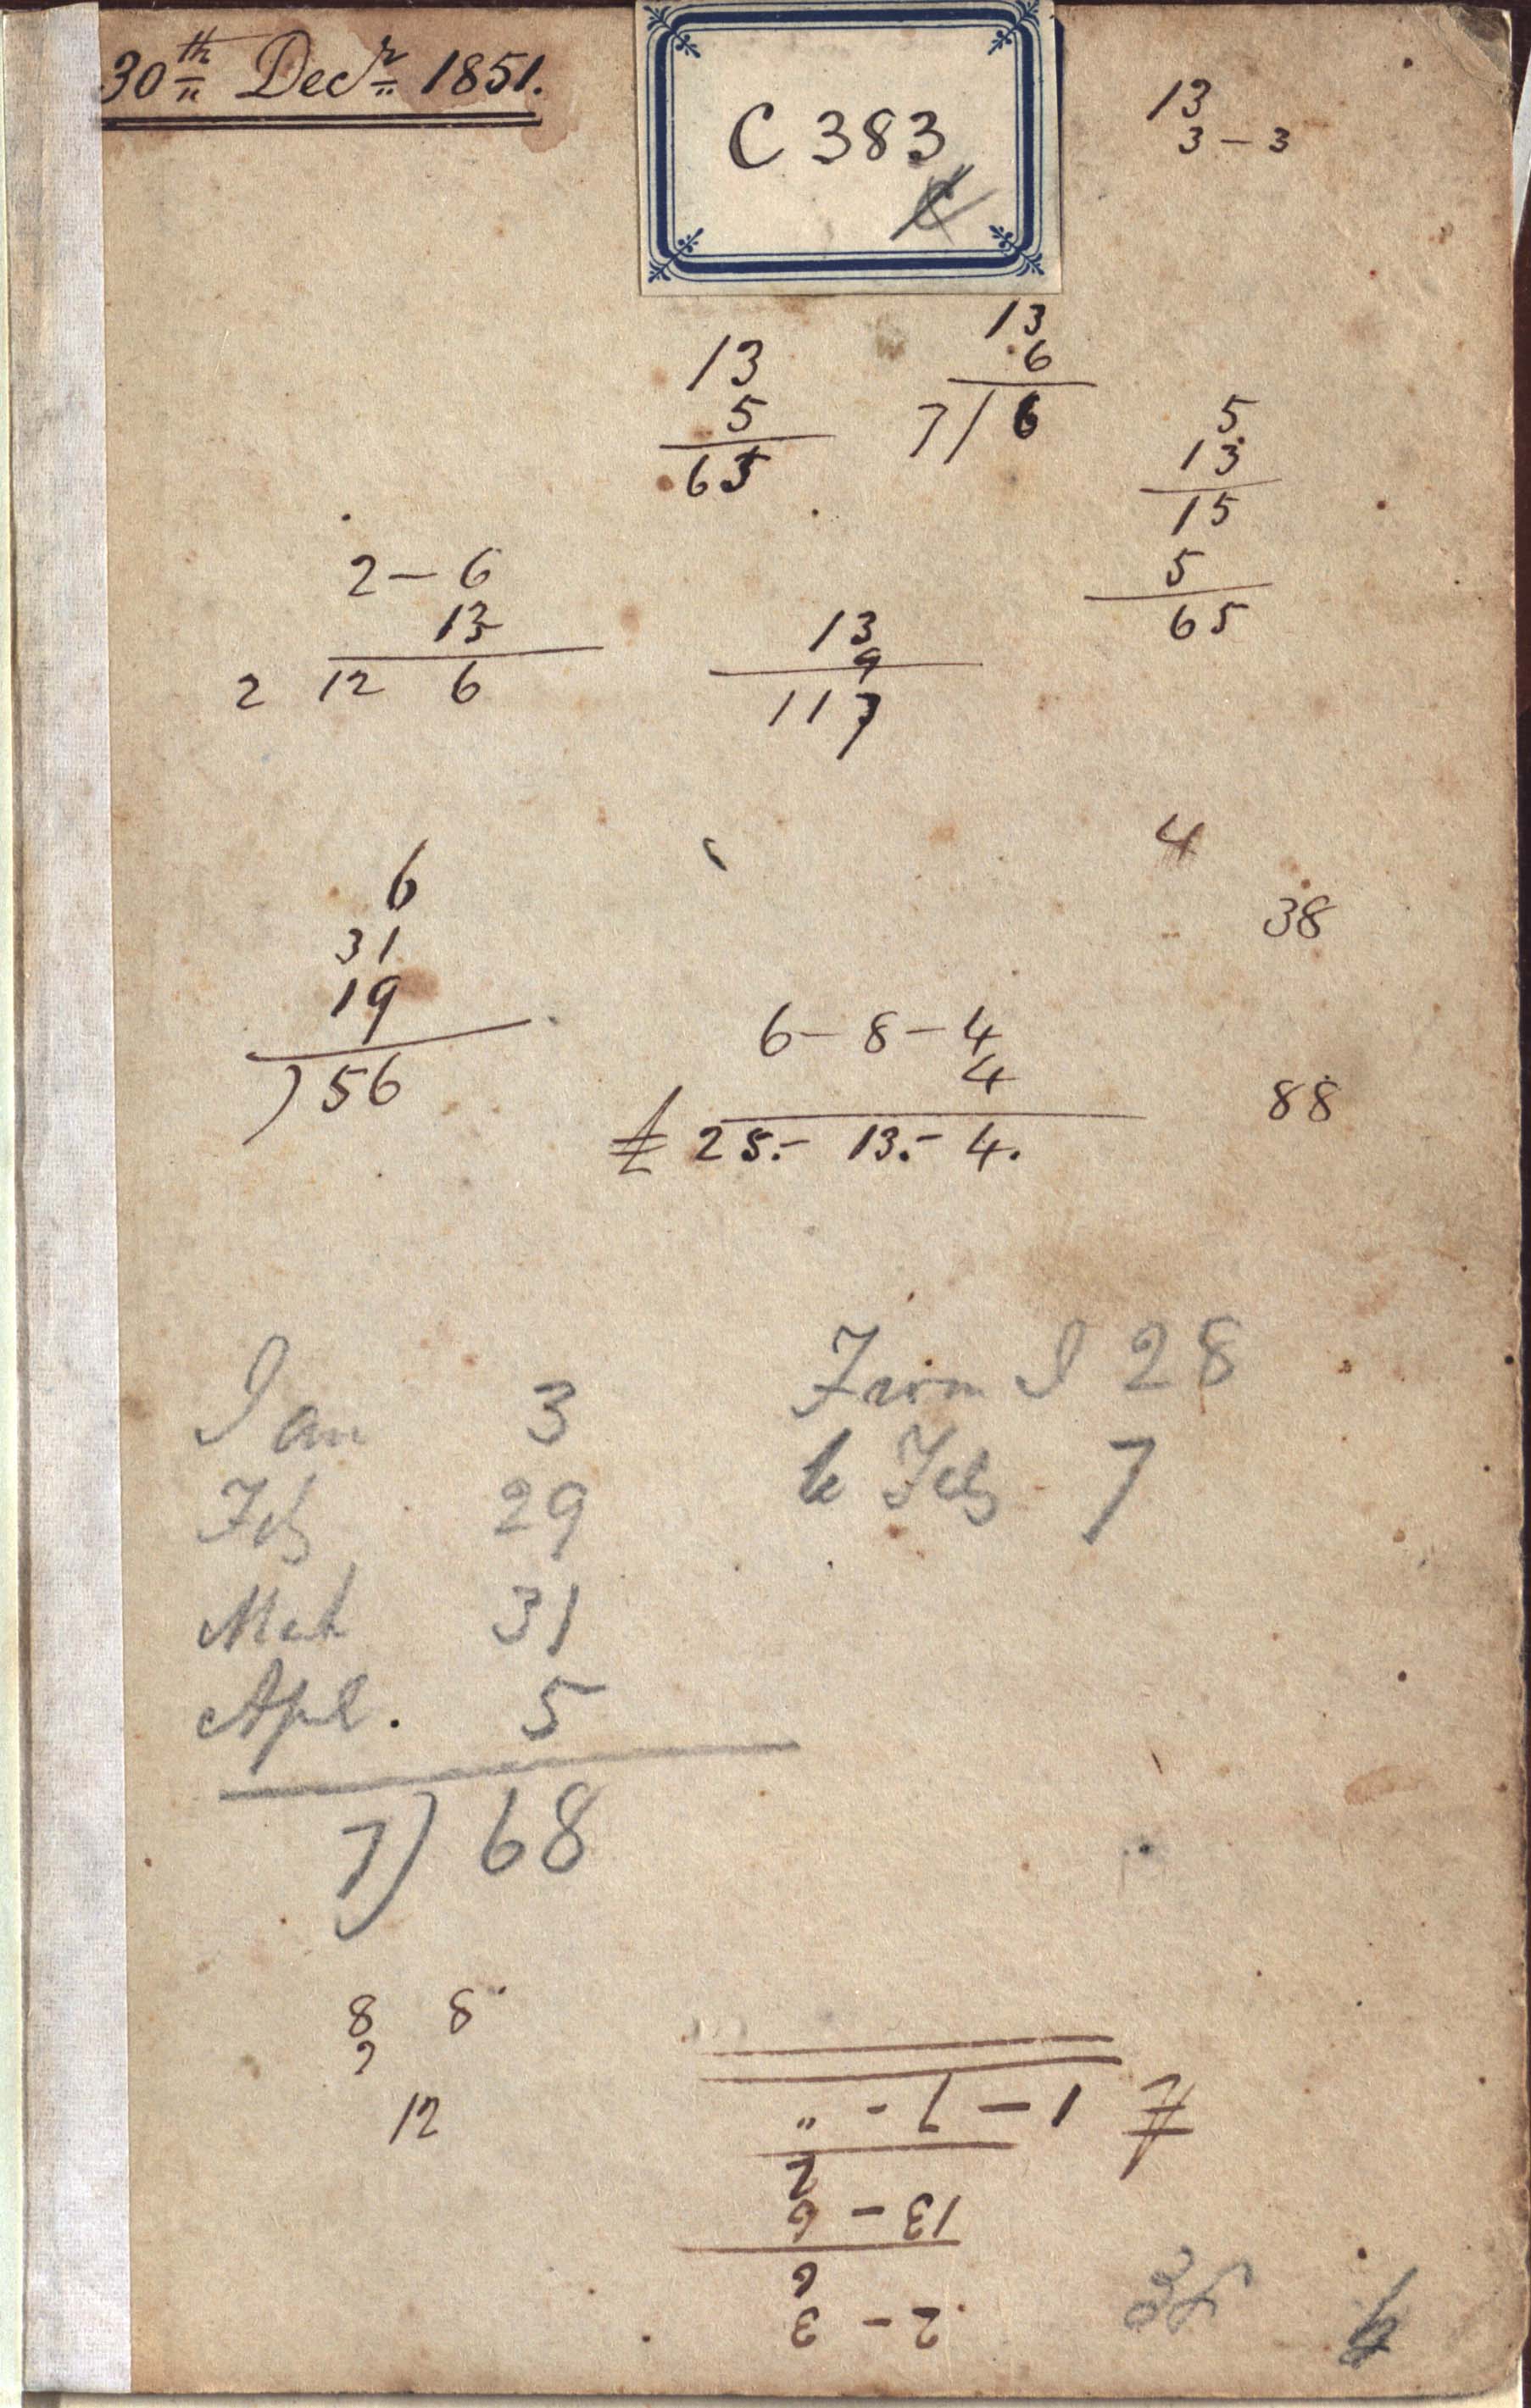 30th Decr 1851.
C 383
C
13
3 - 3
13
5
65
13
6
7/6
5
13
15
5
65
2 - 6
13
2 12 6
13
9
117
6
31
19
) 56
4
38
6 - 8 - 4
4
£ 25.- 13.- 4.
88
Jan 3
Feb 29
Mch 31
Apl. 5
7) 68
From J 28
to Feb 7
8 8
9
12
2 - 3
6
13 - 6
2
£ 1 - 7 - "